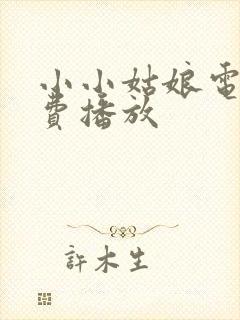 小小姑娘電
費播放
許木生